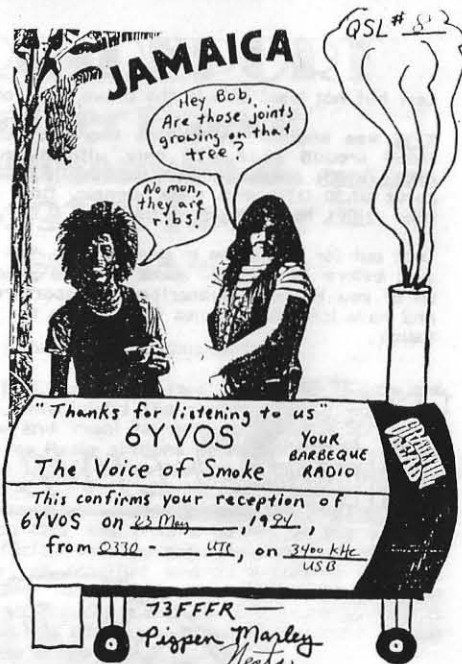 QSL #
JAMAICA
Hey Bob,
Are those joints
growing on that
tree?
No mon,
they are
ribs!
"Thanks for listening to us"
6YVOS
The Voice of Smoke
YOUR
BARBEQUE
RADIO
This confirms your reception of
6YVOS on 23 May, 1994,
from 0330 - UTC, on 3400 kHz
USB
73FFFR —
Pigpen Marley